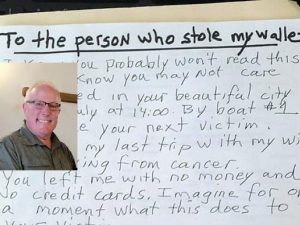 To the person who stole my walle
you probably won't read this
know you may not care
ed in your beautiful city
uly at 14:00. By boat #1
e your next victim.
my last trip with my wi
ing from cancer.
You left me with no money and
No credit cards. Imagine for o
a moment what this does to